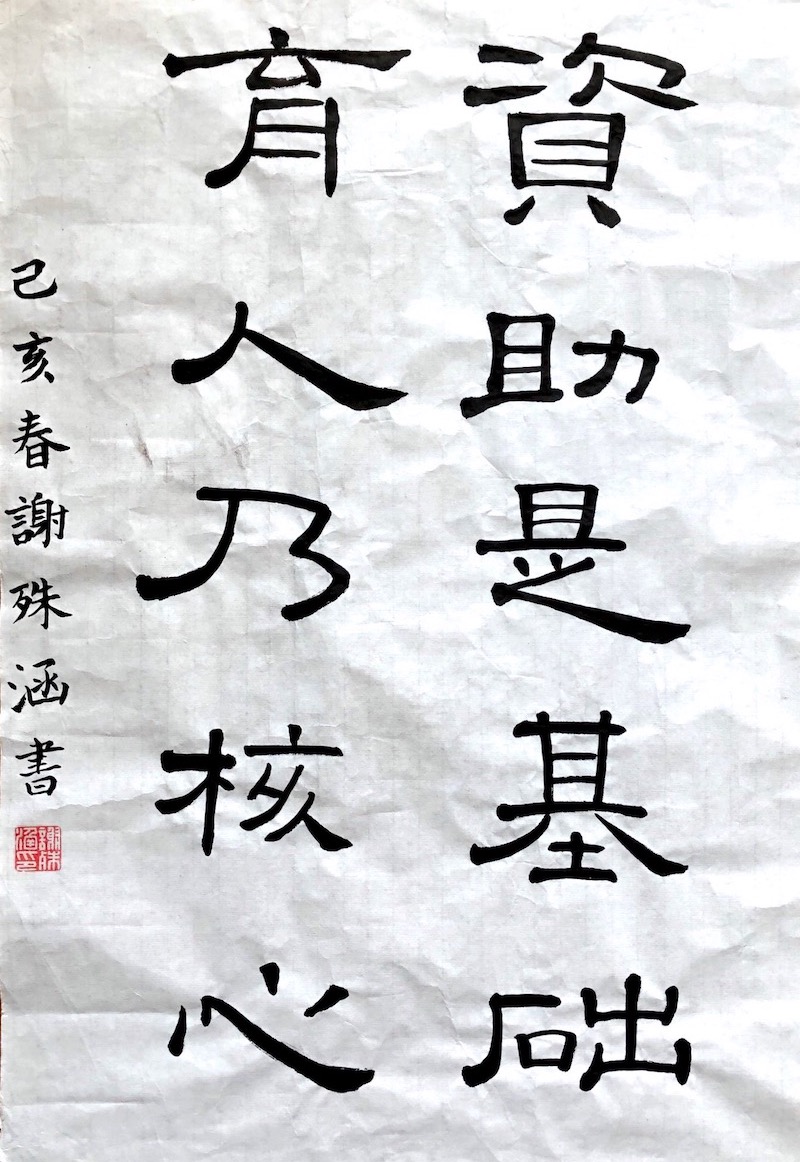 資助是基础
育人乃核心
己亥春謝殊涵書
謝殊涵印